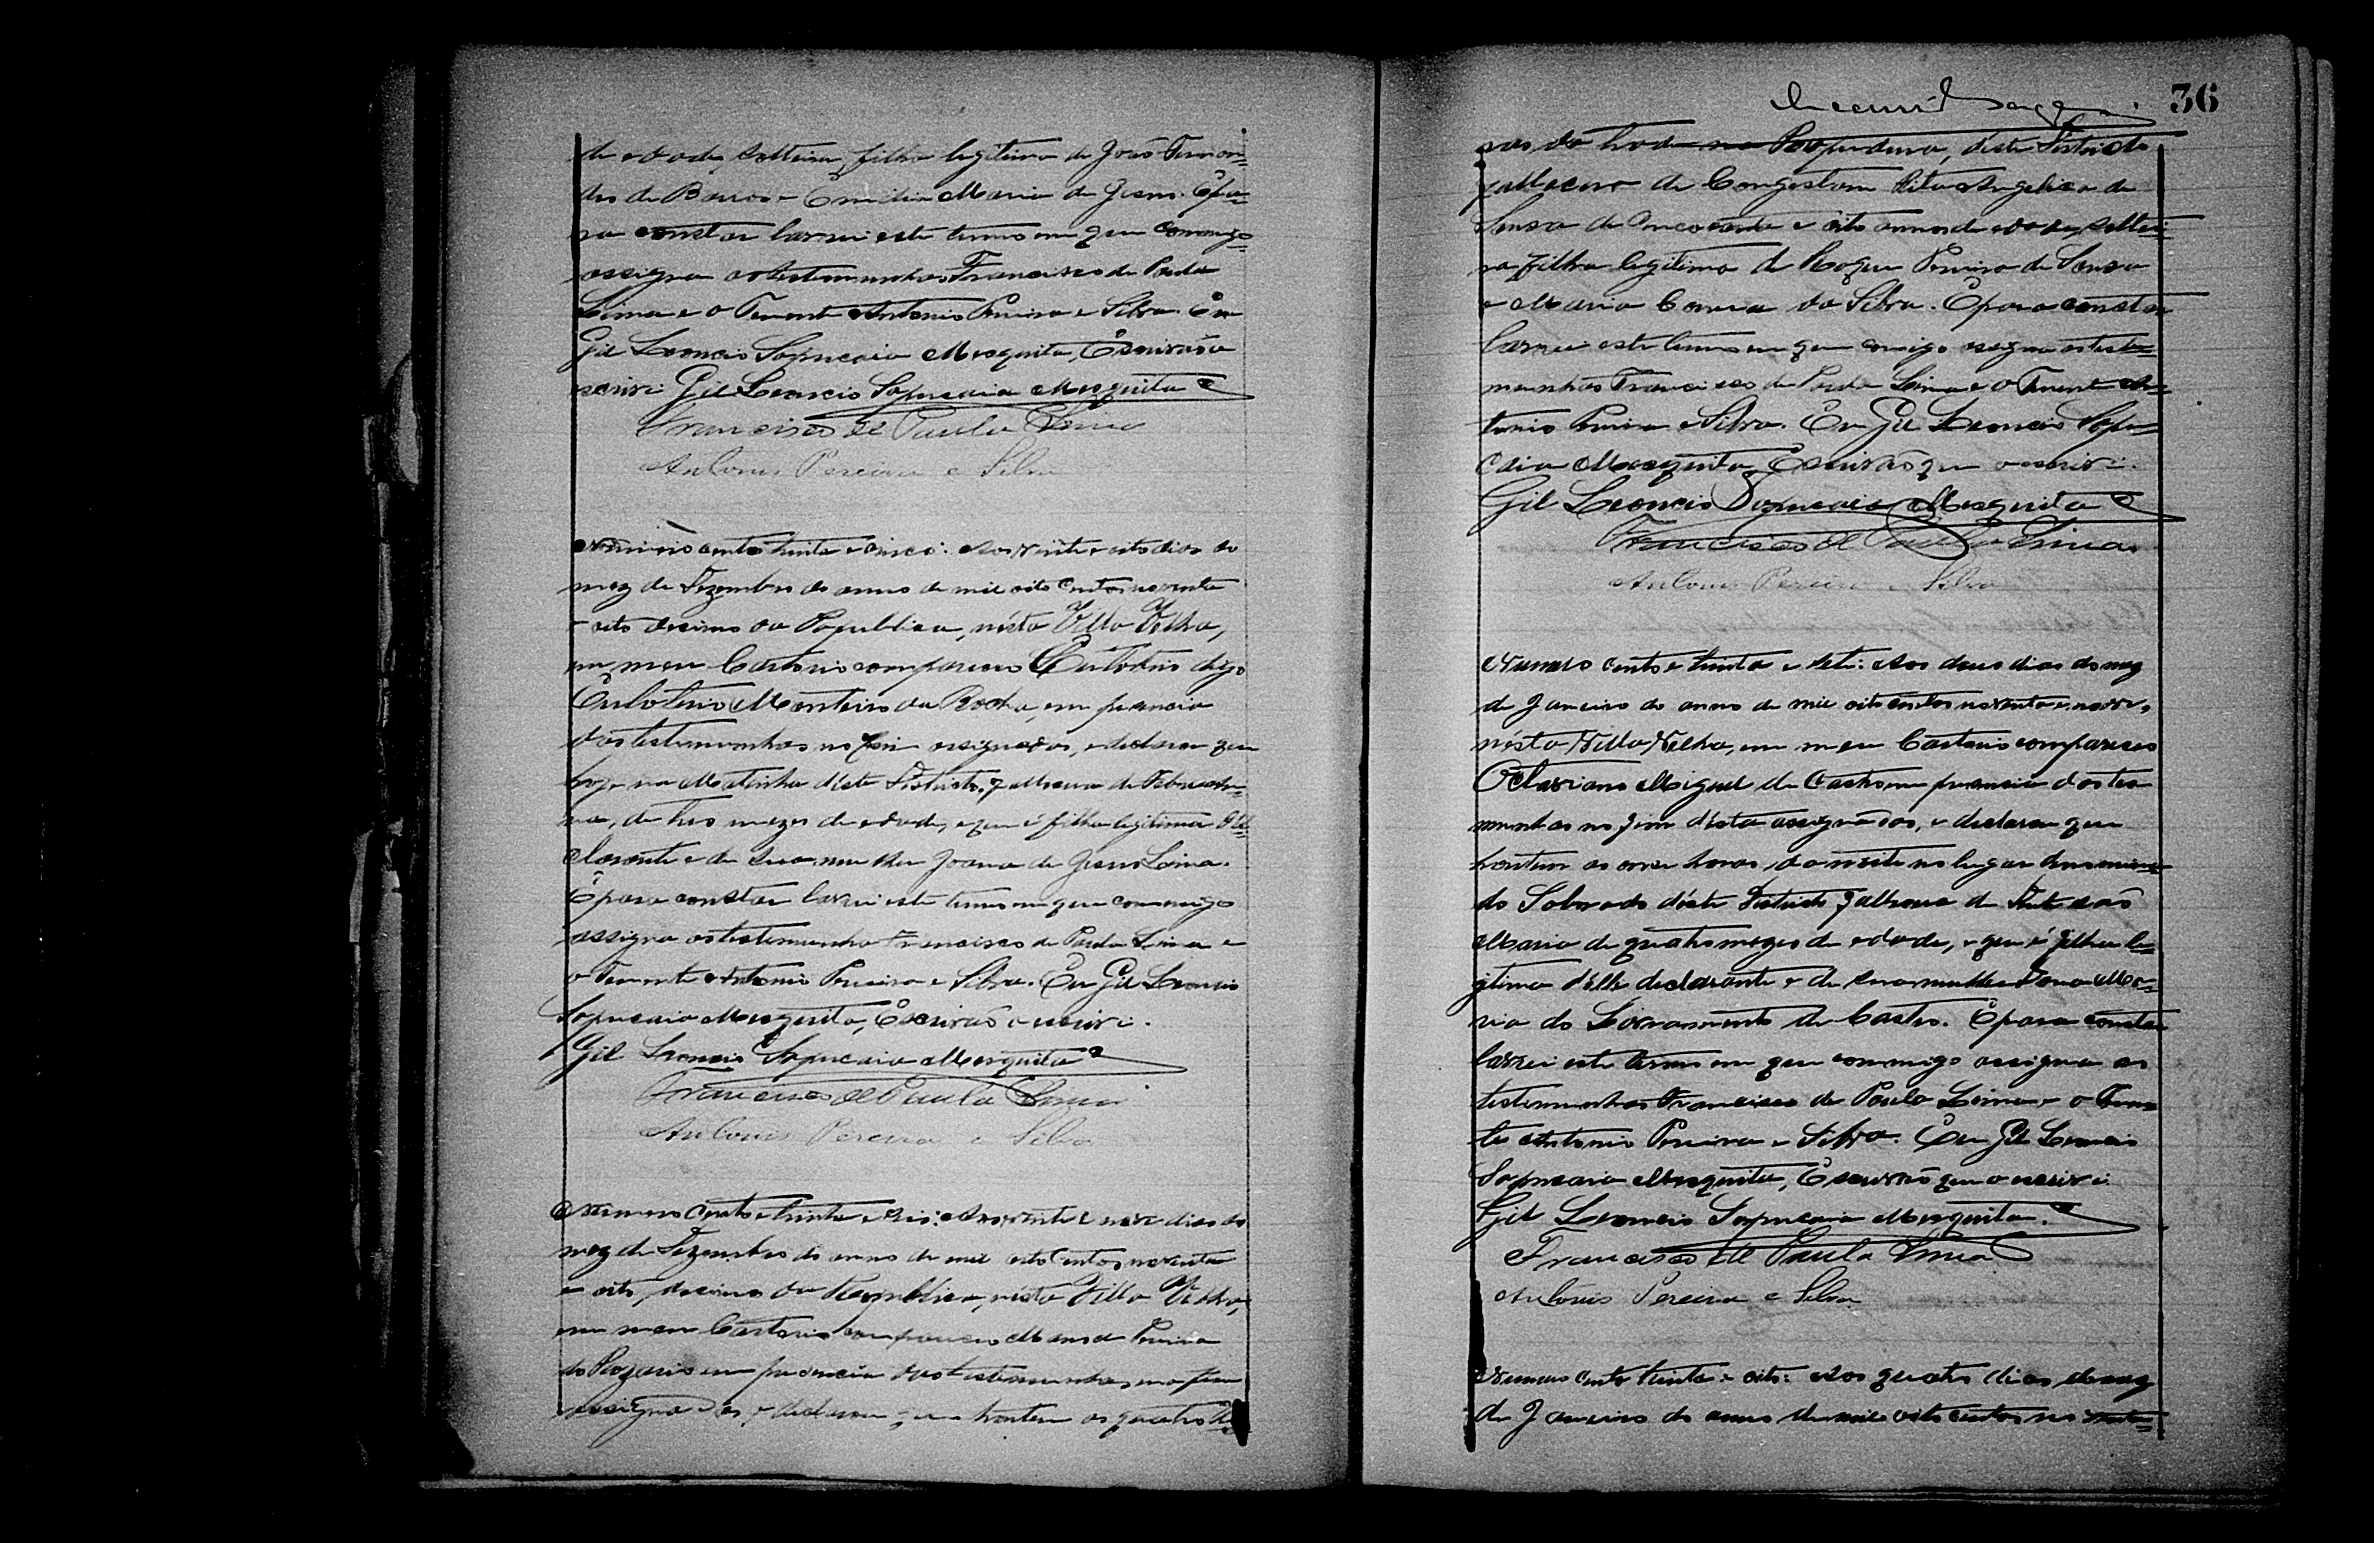 de edade, solteira, filha legitima de João Fernan=
des de Barros e Emidia Maria de Jesus. E pa=
ra constar lavrei este termo em que commigo
assigna as testemunhas Francisco de Paula
Lima e o Tenente Antonio Pereira e Silva. Eu
Gil Leoncio Sapucaia Mesquita, Escrivão
escrivi. Gil Leoncio Sapucaia Mesquita
Francisco de Paula Lima
Antonio Pereira e Silva
Numero cento trinta e cinco: Aos vinte e oito dias do
mez de Dezembro do anno de mil oito centos noventa
e oito decimo da Republica, nésta Villa Velha,
em meu Cartorio compareceu digo
Monteiro da Rocha, em presencia
das testemunhas no fim assignadas, e declarou que
hoje na Matinha déste Districto, falleceu de
de tres mezes de edade, e que é filha legitima delle
clarante e de sua mulher Joana de Jesus Lima.
E para constar lavrei este termo em que commigo
assigna as testemunha Francisco de Paula Lima e
o Tenente Antonio Pereira e Silva. Eu Gil Leoncio
Sapucaia Mesquita, Escrivão o escrivi.
Gil Leoncio Sapucaia Mesquita
Francisco de Paula Lima
Antonio Pereira e Silva
Numero Cento e trinta e seis: Aos vinte e nove dias do
mez de Dezembro do anno de mil oito centos noventa
e oito, decimo da Republica, nésta Villa Velha,
em meu Cartorio compareceu Manoel Pereira
do Rozario em presencia das testemunhas no fim
assignadas, e declarou que hontem as quatro ho=
36
ras da tarde na déste Districto
falleceu de Congestam Rita Angelica de
Sousa de cincoenta e oito annos de edade, soltei=
ra filha legitima de Roque Pereira de Sousa
e Maria Correia da Silva. E para constar
lavrei este termo em que comigo assigna as teste=
munhas Francisco de Paula Lima e o Tenente An=
tonio Pereira e Silva. Eu Gil Leoncio Sapu=
caia Mesquita, Escrivão que o escrivi.
Gil Leoncio Sapucaia Mesquita
Francisco de Paula Lima
Antonio Pereira e Silva
Numero cento e trinta e sete: Aos dous dias do mez
de Janeiro do anno de mil oito centos noventa e nove,
nésta Villa Velha, em meu Cartorio compareceu
Octaviano Miguel de Castro em presencia das tes
munhas no fim désta assignádas, e declarou que
hontem as onze horas da noite no lugar denomina=
do Sobrado déste Districto falleceu de
Maria de quatro mezes de edade, e que é filha le=
gitima délle declarante e de sua mulher Dona Ma=
ria do Sacramento de Castro. E para constar
lavrei este termo em que commigo assigna as
testemunhas Francisco de Paula Lima e o Tenen
te Antonio Pereira e Silva. Eu Gil Leoncio
Sapucaia Mesquita, Escrivão que o escrivi.
Gil Leoncio Sapucaia Mesquita.
Francisco de Paula Lima
Antonio Pereira e Silva
Numero cento trinta e oito: Aos quatro dias do mez
de Janeiro do anno de mil oito centos noventa=